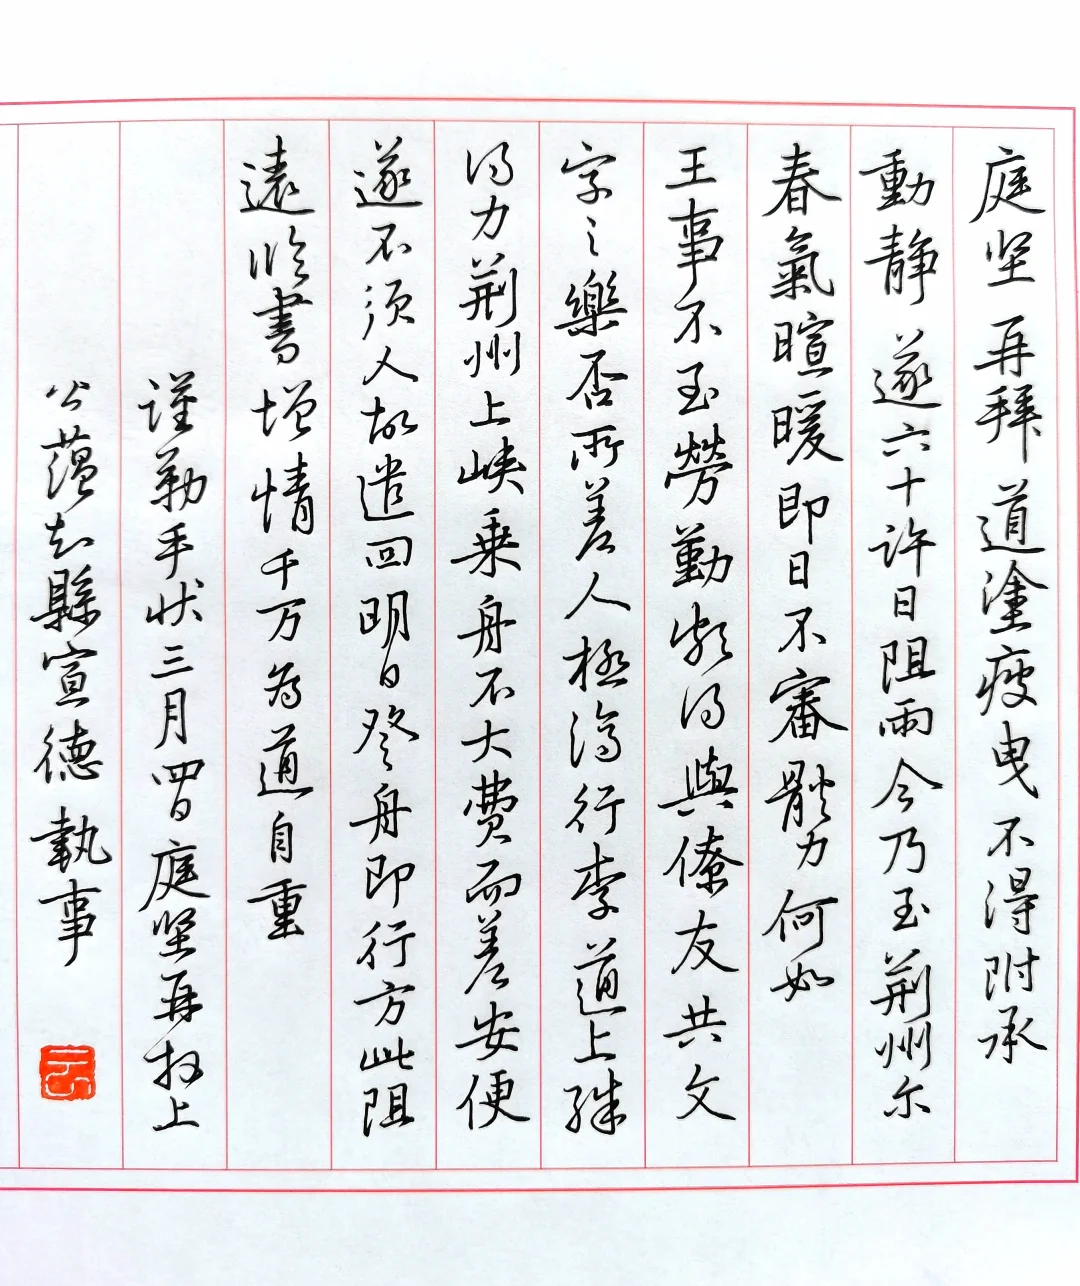 庭坚再拜道塗疲曳不得附承
動静遂六十许日阻雨今乃至荆州尔
春氣暄暖即日不審體力何如
王事不至勞勤頗得與僚友共文
字之樂否所差人極済行李道上殊
得力荆州上峡乗舟不大費而差安便
遂不须人故遣回明日發舟即行方此阻
遠临書增情千万為道自重
谨勒手状三月四日庭坚再拜上
公蕴知縣宣德執事